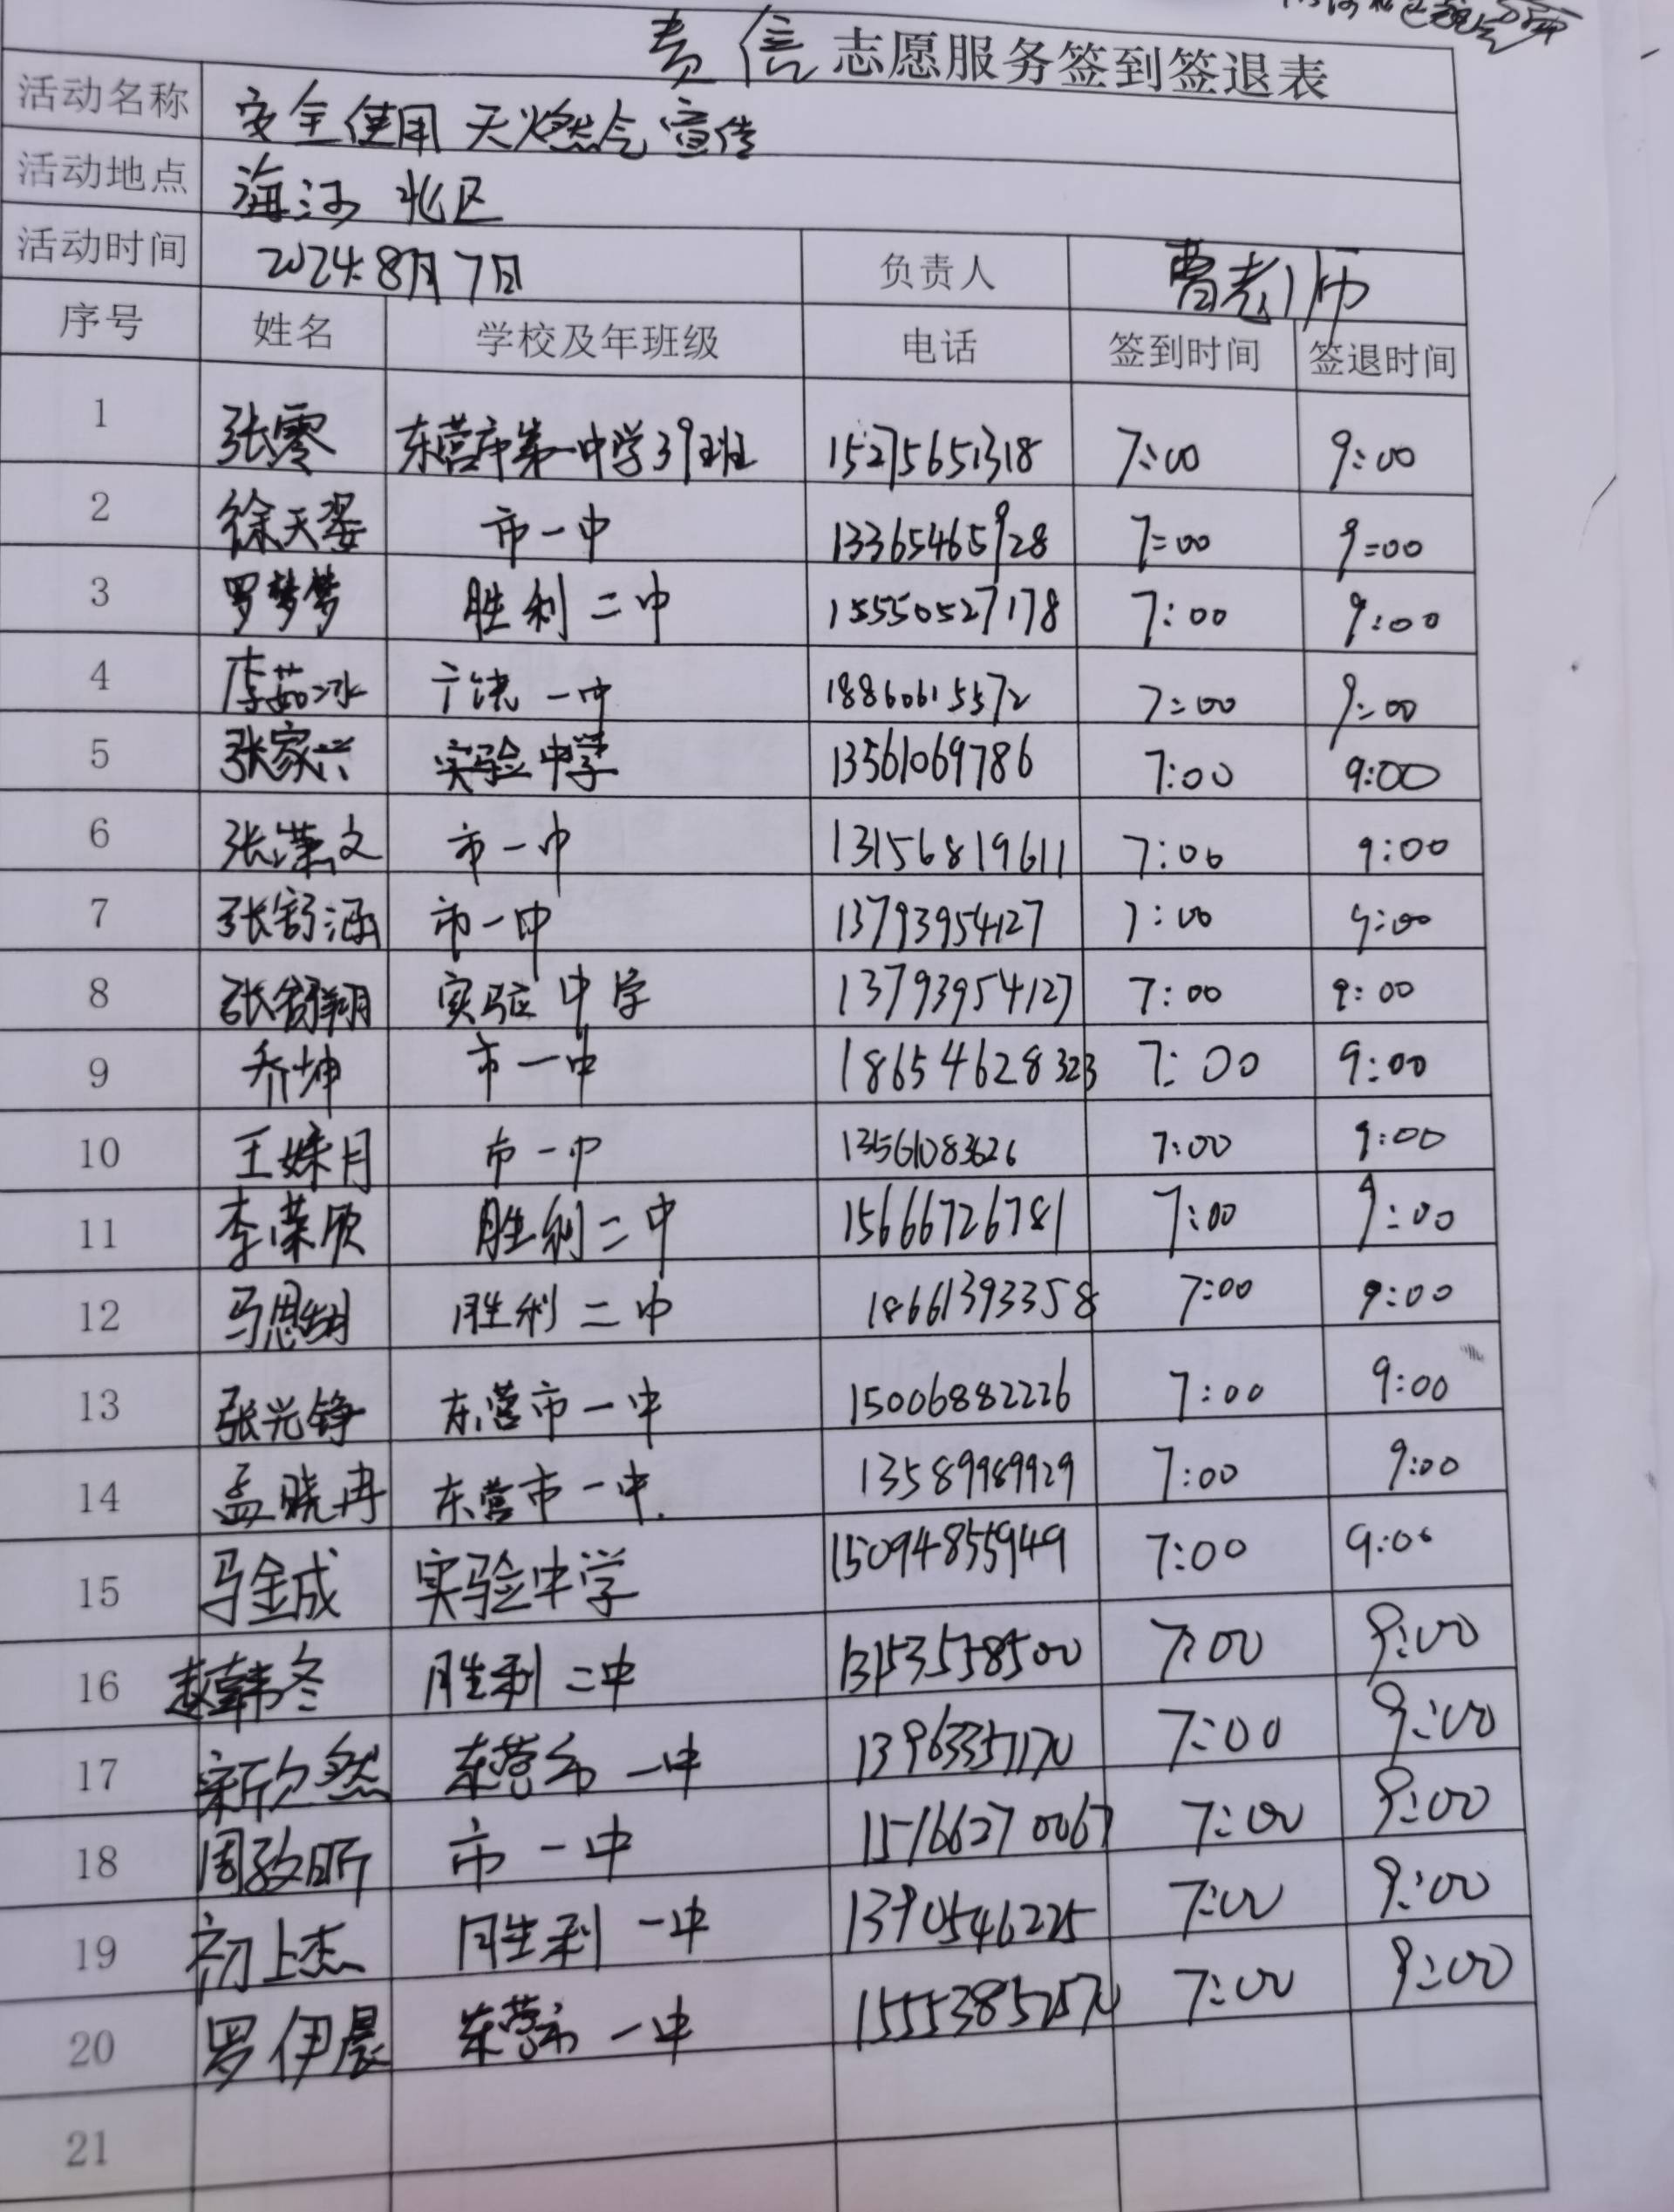 责信志愿服务签到签退表
活动名称 安全使用天燃气宣传
活动地点 海河北区
活动时间 2024.8月7日 负责人 曹老师
序号 姓名 学校及年班级 电话 签到时间 签退时间
1 张零 东营市第一中学39班 15275651318 7:00 9:00
2 徐天翌 市一中 13365465928 7:00 9:00
3 罗梦梦 胜利二中 15550527178 7:00 9:00
4 李茹冰 广饶一中 18860615572 7:00 9:00
5 张家兴 实验中学 13561069786 7:00 9:00
6 张潆文 市一中 13156819611 7:00 9:00
7 张舒涵 市一中 13793954127 7:00 9:00
8 张舒翔 实验中学 13793954127 7:00 9:00
9 乔坤 市一中 18654628323 7:00 9:00
10 王姝月 市一中 13561083626 7:00 9:00
11 李荣欣 胜利二中 15666726781 7:00 9:00
12 马思玥 胜利二中 18661393358 7:00 9:00
13 张光铮 东营市一中 15006882226 7:00 9:00
14 孟晓冉 东营市一中. 13589989929 7:00 9:00
15 马金成 实验中学 15094855949 7:00 9:00
16 赵韩冬 胜利二中 13153558500 7:00 9:00
17 宋欣然 东营市一中 13963357170 7:00 9:00
18 周孜昕 市一中 15166270067 7:00 9:00
19 初上杰 胜利一中 13910546225 7:00 9:00
20 罗伊晨 东营市一中 7:00 9:00
21